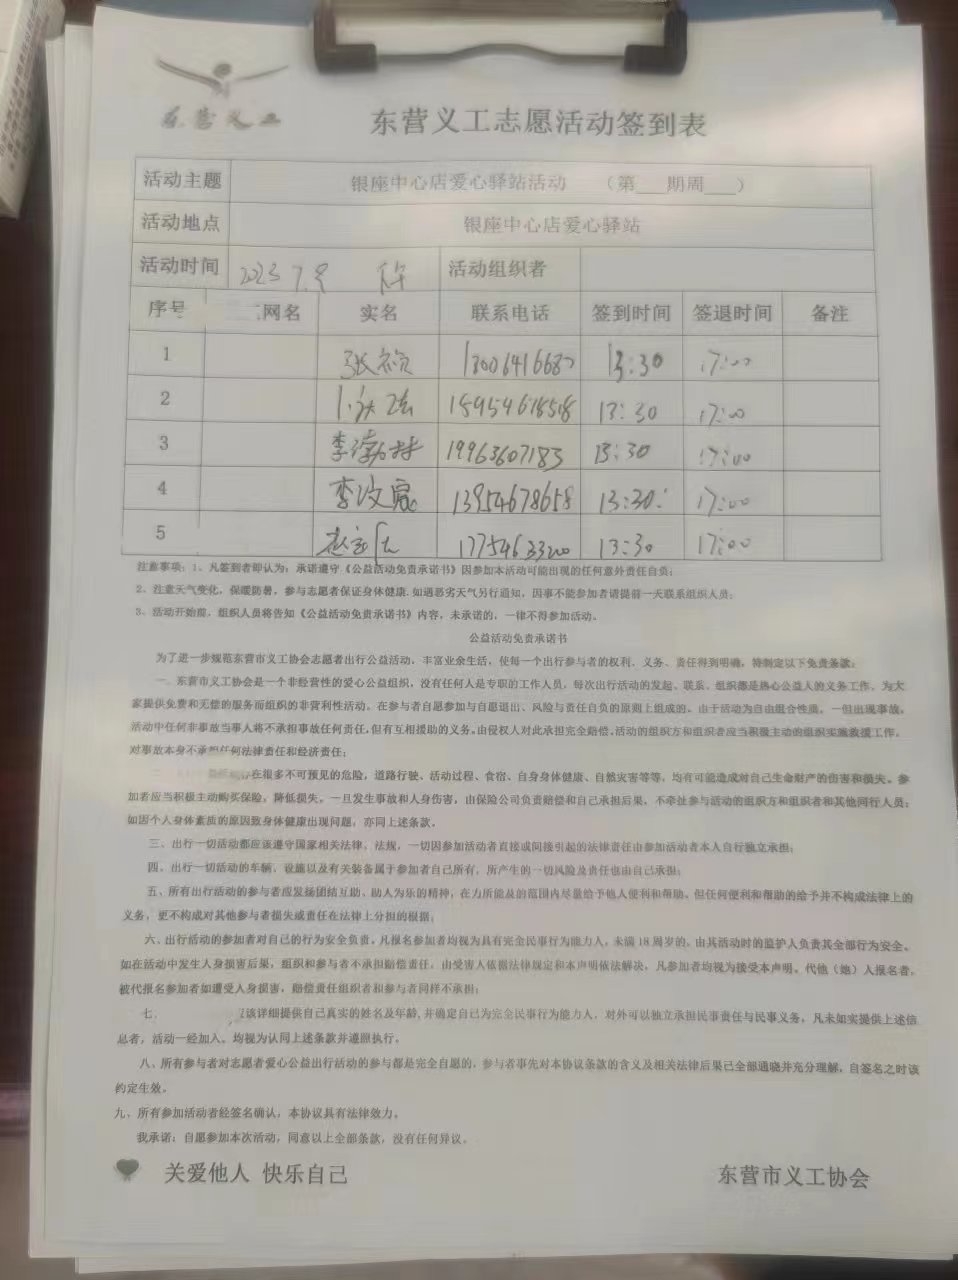 东营义工
东营义工志愿活动签到表
活动主题 银座中心店爱心驿站活动 （第 期周 ）
活动地点 银座中心店爱心驿站
活动时间 2023 7.9 活动组织者
序号 网名 实名 联系电话 签到时间 签退时间 备注
1 13:30 17:00
2 18954618518 13:30 17:00
3 19963607183 13:30 17:00
4 李汶宸 13954678658 13:30 17:00
5 17754633200 13:30 17:00
注意事项：1、凡签到者即认为：承诺遵守《公益活动免责承诺书》因参加本活动可能出现的任何意外责任自负；
2、注意天气变化，保暖防暑，参与志愿者保证身体健康.如遇恶劣天气另行通知，因事不能参加者请提前一天联系组织人员；
3、活动开始前，组织人员将告知《公益活动免责承诺书》内容，未承诺的，一律不得参加活动。
公益活动免责承诺书
为了进一步规范东营市义工协会志愿者出行公益活动，丰富业余生活，使每一个出行参与者的权利、义务、责任得到明确，特制定以下免责条款：
一、东营市义工协会是一个非经营性的爱心公益组织，没有任何人是专职的工作人员，每次出行活动的发起、联系、组织都是热心公益人的义务工作，为大
家提供免费和无偿的服务而组织的非营利性活动。在参与者自愿参加与自愿退出、风险与责任自负的原则上组成的。由于活动为自由组合性质，一但出现事故，
活动中任何非事故当事人将不承担事故任何责任，但有互相援助的义务。由侵权人对此承担完全赔偿。活动的组织方和组织者应当积极主动的组织实施救援工作，
对事故本身不承担任何法律责任和经济责任；
存在很多不可预见的危险，道路行驶、活动过程、食宿、自身身体健康、自然灾害等等，均有可能造成对自己生命财产的伤害和损失。参
加者应当积极主动购买保险，降低损失。一旦发生事故和人身伤害，由保险公司负责赔偿和自己承担后果，不牵扯参与活动的组织方和组织者和其他同行人员；
如因个人身体素质的原因致身体健康出现问题，亦同上述条款。
三、出行一切活动都应该遵守国家相关法律、法规，一切因参加活动者直接或间接引起的法律责任由参加活动者本人自行独立承担；
四、出行一切活动的车辆、设施以及有关装备属于参加者自己所有，所产生的一切风险及责任也由自己承担；
五、所有出行活动的参与者应发扬团结互助、助人为乐的精神，在力所能及的范围内尽量给予他人便利和帮助。但任何便利和帮助的给予并不构成法律上的
义务，更不构成对其他参与者损失或责任在法律上分担的根据；
六、出行活动的参加者对自己的行为安全负责。凡报名参加者均视为具有完全民事行为能力人，未满18周岁的，由其活动时的监护人负责其全部行为安全。
如在活动中发生人身损害后果，组织和参与者不承担赔偿责任，由受害人依据法律规定和本声明依法解决，凡参加者均视为接受本声明。代他（她）人报名者，
被代报名参加者如遭受人身损害，赔偿责任组织者和参与者同样不承担；
七、 该详细提供自己真实的姓名及年龄，并确定自己为完全民事行为能力人，对外可以独立承担民事责任与民事义务，凡未如实提供上述信
息者，活动一经加入，均视为认同上述条款并遵照执行。
八、所有参与者对志愿者爱心公益出行活动的参与都是完全自愿的，参与者事先对本协议条款的含义及相关法律后果已全部通晓并充分理解，自签名之时该
约定生效。
九、所有参加活动者经签名确认，本协议具有法律效力。
我承诺：自愿参加本次活动，同意以上全部条款，没有任何异议。
关爱他人 快乐自己 东营市义工协会